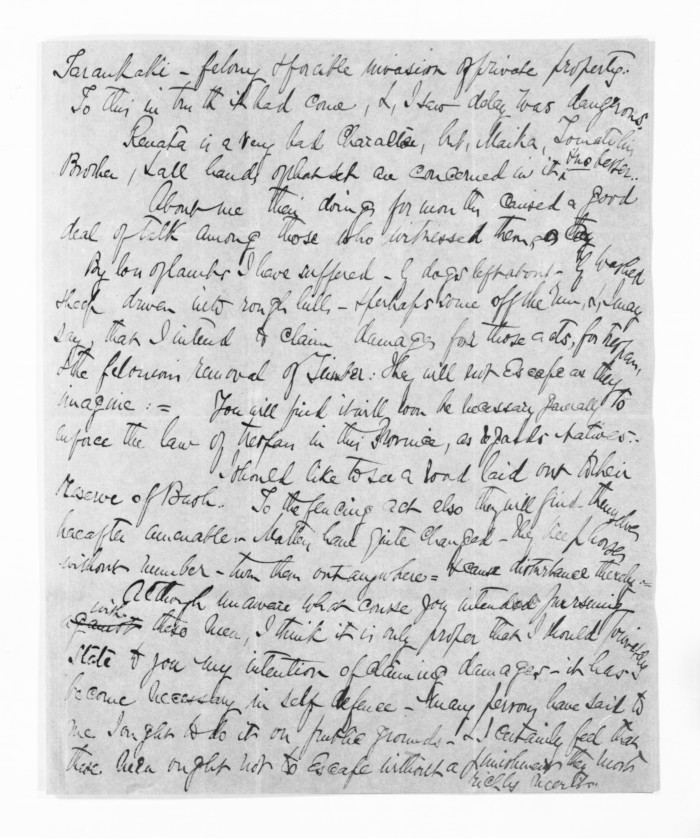 Tarankaki - felony & forcible invasion of private property.
To this in truth it had come, &, I saw delay was dangerous,
Renata is a very bad Character, but, Maika, Tomati his
Brother, & all hands of that set are concerned in it; & no better.
About me their doings for months caused a good
deal of talk among those who witnessed them
By loss of lambs I have suffered - by dogs left about - by washed
sheep driven into rough hills - & perhaps some off the Run, &, I may
say, that I intend to claim damages for those acts, for trespass,
& the felonious removal of Timber: They will not Escape as they
imagine := You will find it will soon be necessary generally to
enforce the law of trespass in this Province, as regards Natives:-
I should like to see a road laid out to their
reserve of Bush. To the fencing act also they will find themselves
hereafter amenable - Matters have quite changed - they keep horses
without number - turn them out anywhere = & cause disturbance thereby :=
Although unaware what course you intended pursuing
with
against these men, I think it is only proper that I should privately
state to you my intention of claiming damages - it has
become necessary in self defence - Many persons have said to
me I ought to do it on public grounds - & I certainly feel that
these men ought not to Escape without a punishment they most
richly merit.